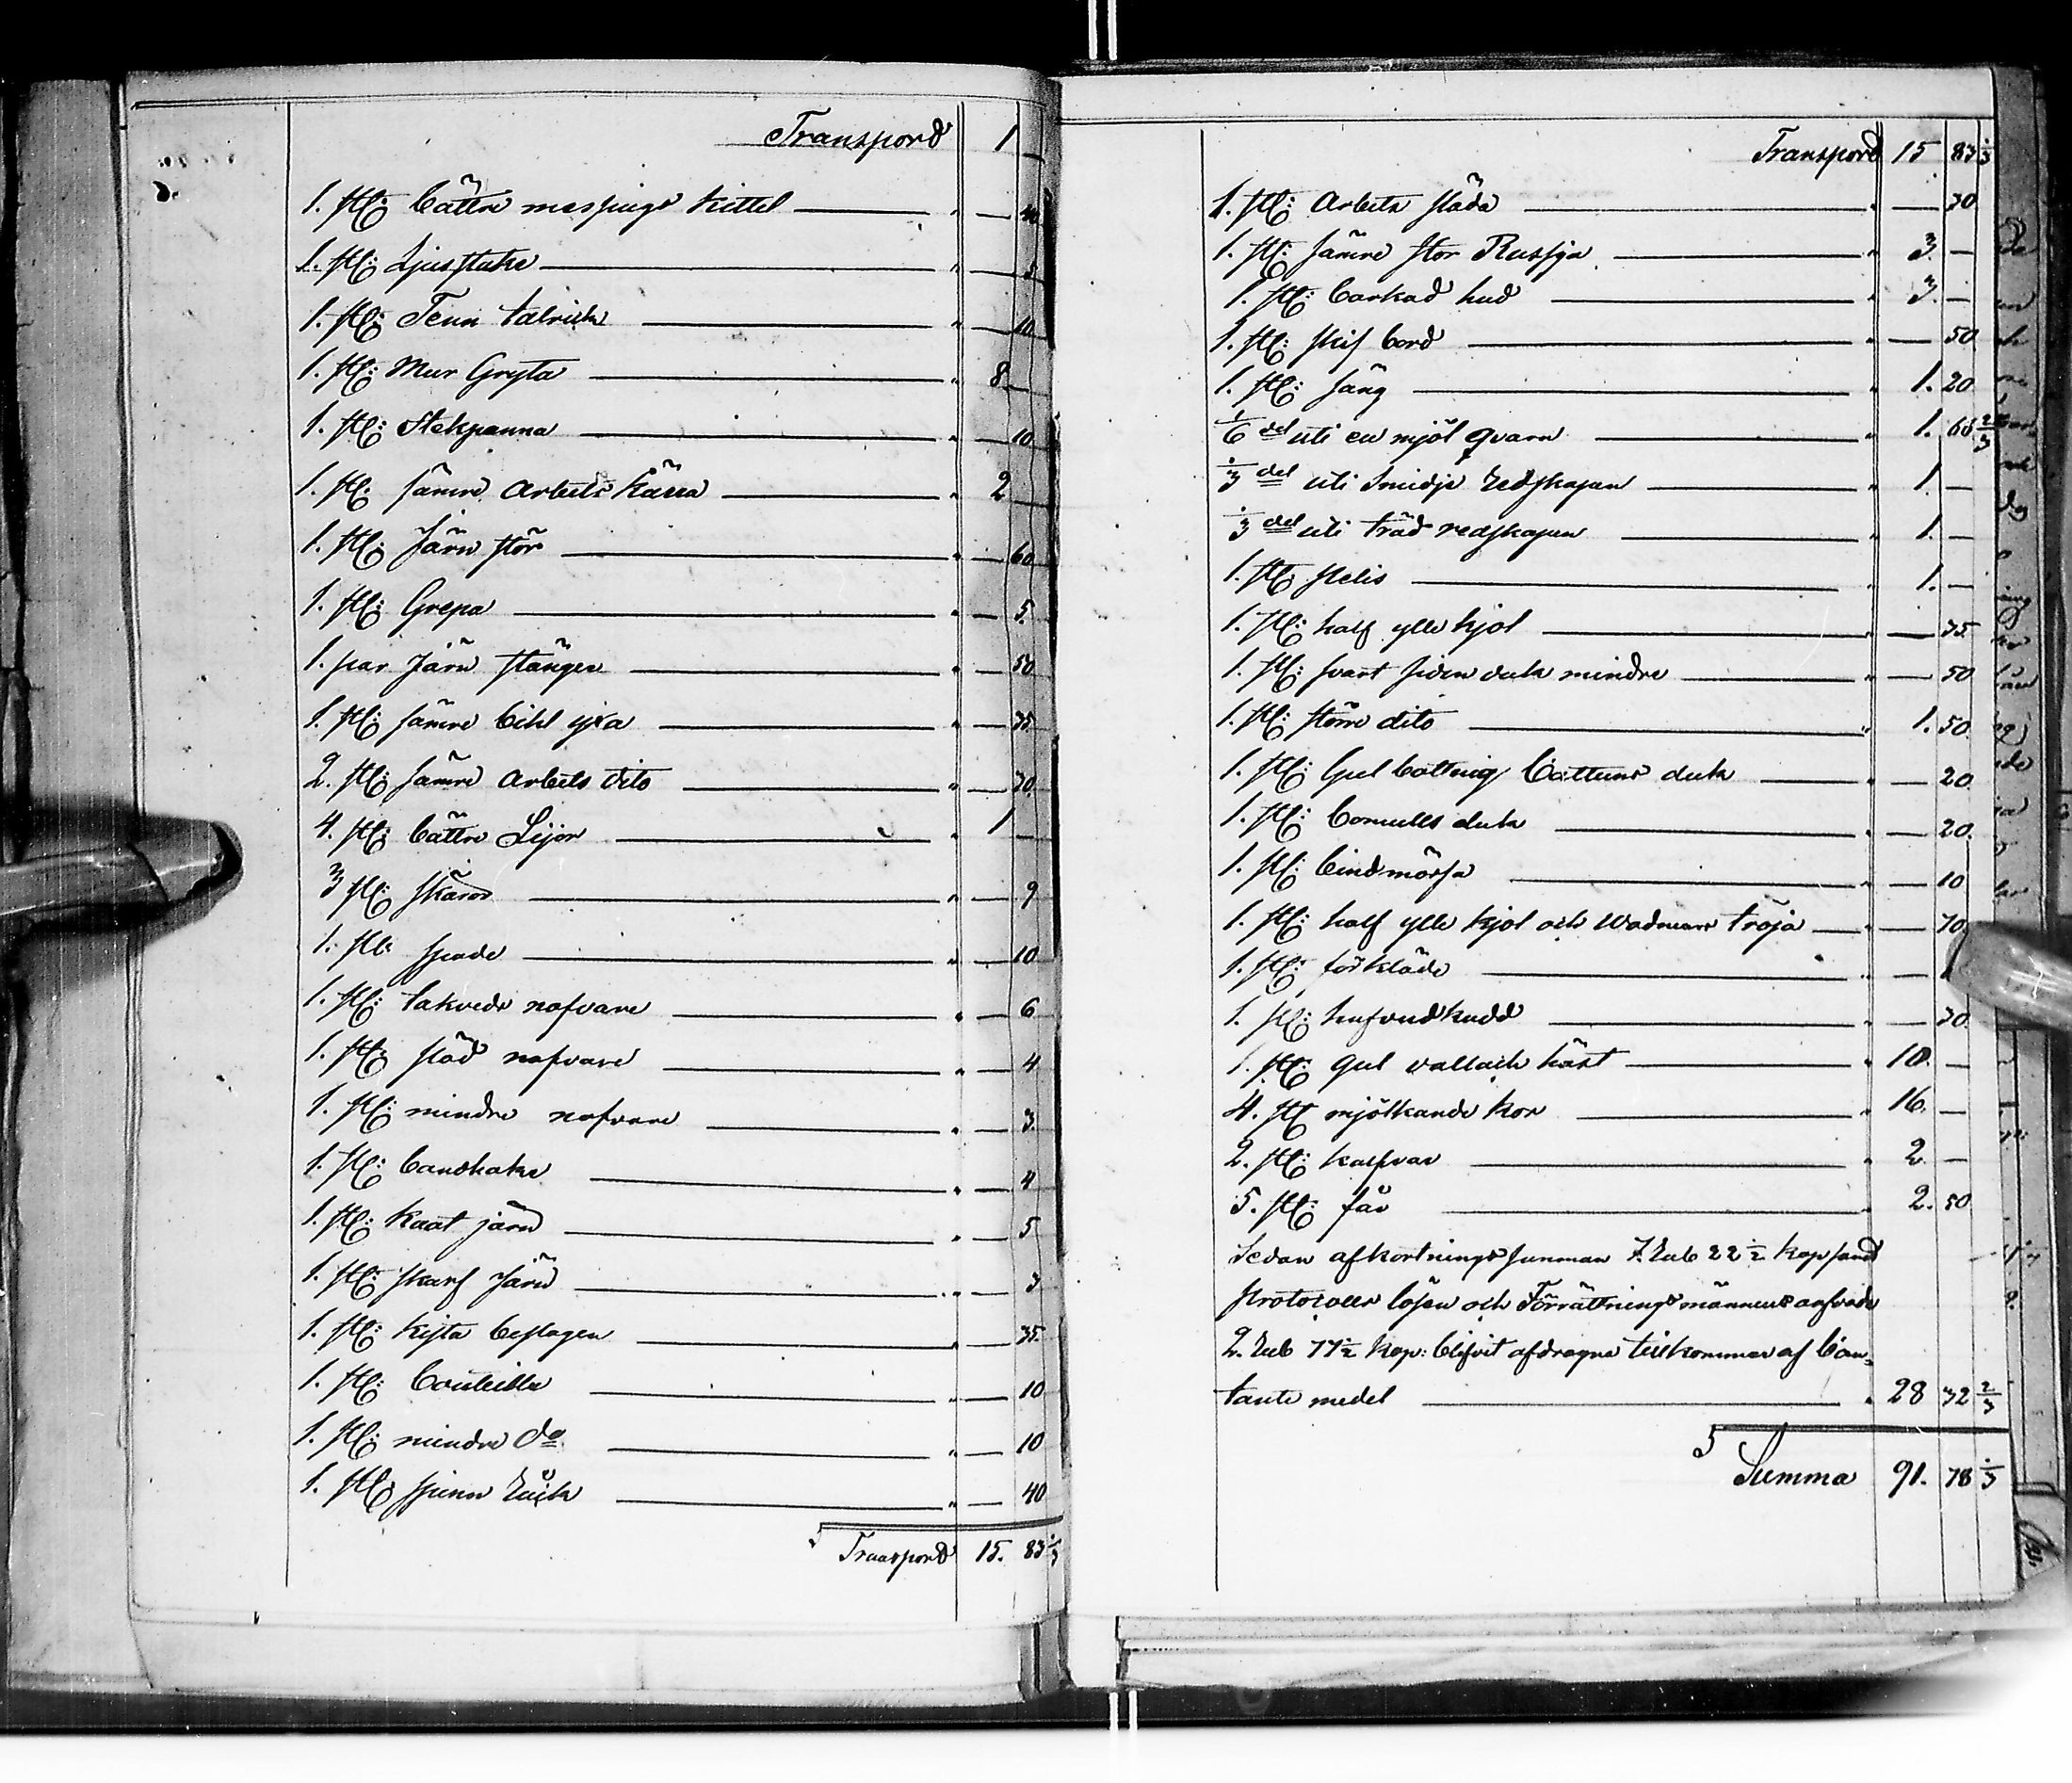 Transpord 1 —
1. st: bättre messings kittel — 40
1. st: Ljusstake — 5
1. st: Tenn talrick — 10
1. st: Mur Gryta 8 —
1. st: Stekpanna — 10
1. st: sämre Arbets Kärra 2
1. st: Järn stör — 60
1. st: Grepa — 5.
1. par Järn stänger — 50
1. st: sämre bihl yxa — 35
2. st: sämre Arbets dito — 30
4. st: bättre Lijor 1 —
3 st: skäror — 9
1. st: spade — 10
1. st: takveds nafvare — 6
1. st: släd nafvare — 4
1. st: mindre nafvare — 3.
1. st: bandhake — 4
1. st: Kaat järn — 5
1. st: skarf Järn — 3
1. st: kista beslagen — 35.
1. st: bouteille — 10
1. st: mindre do — 10
1. st: spinn Råck — 40
Transpord 15. 83 1/3
Transpord 15 83 1/3
1. st: Arbets släda — 30
1. st: sämre stor Russja 3. —
1. st: barkad hud 3. —
1. st: skif bord — 50
1. st: säng 1. 20
1/6 del uti en mjöl qvarn 1. 66 2/3
1/3 del uti Smidje redskapen 1. —
1/3 del uti träd redskapen 1. —
1. st: 1. —
1. st: half ylle kjol — 75.
1. st: svart siden duk mindre — 50
1. st: större dito 1. 50.
1. st: Gul bottnig Cattuns duk — 20
1. st: bomulls duk — 20.
1. st: bindmössa — 10
1. st: half ylle kjol och wadmans tröja — 70
1. st: förkläde —
1. st: hufvudkudd — 30
1. st: gul vallack häst 10. —
4. st mjölkande kor 16. —
2. st: kalfvar 2 —
5. st: får 2. 50
Sedan afkortnings summan 7. Rub 22 1/2 kop samt
Protocolls lösen och Förrättningsmännens arfvode
2. Rub 77 1/2 kop: blifvit afdragne tillkommer af Con-
tante medel 28 32 2/3
Summa 91. 78 1/3